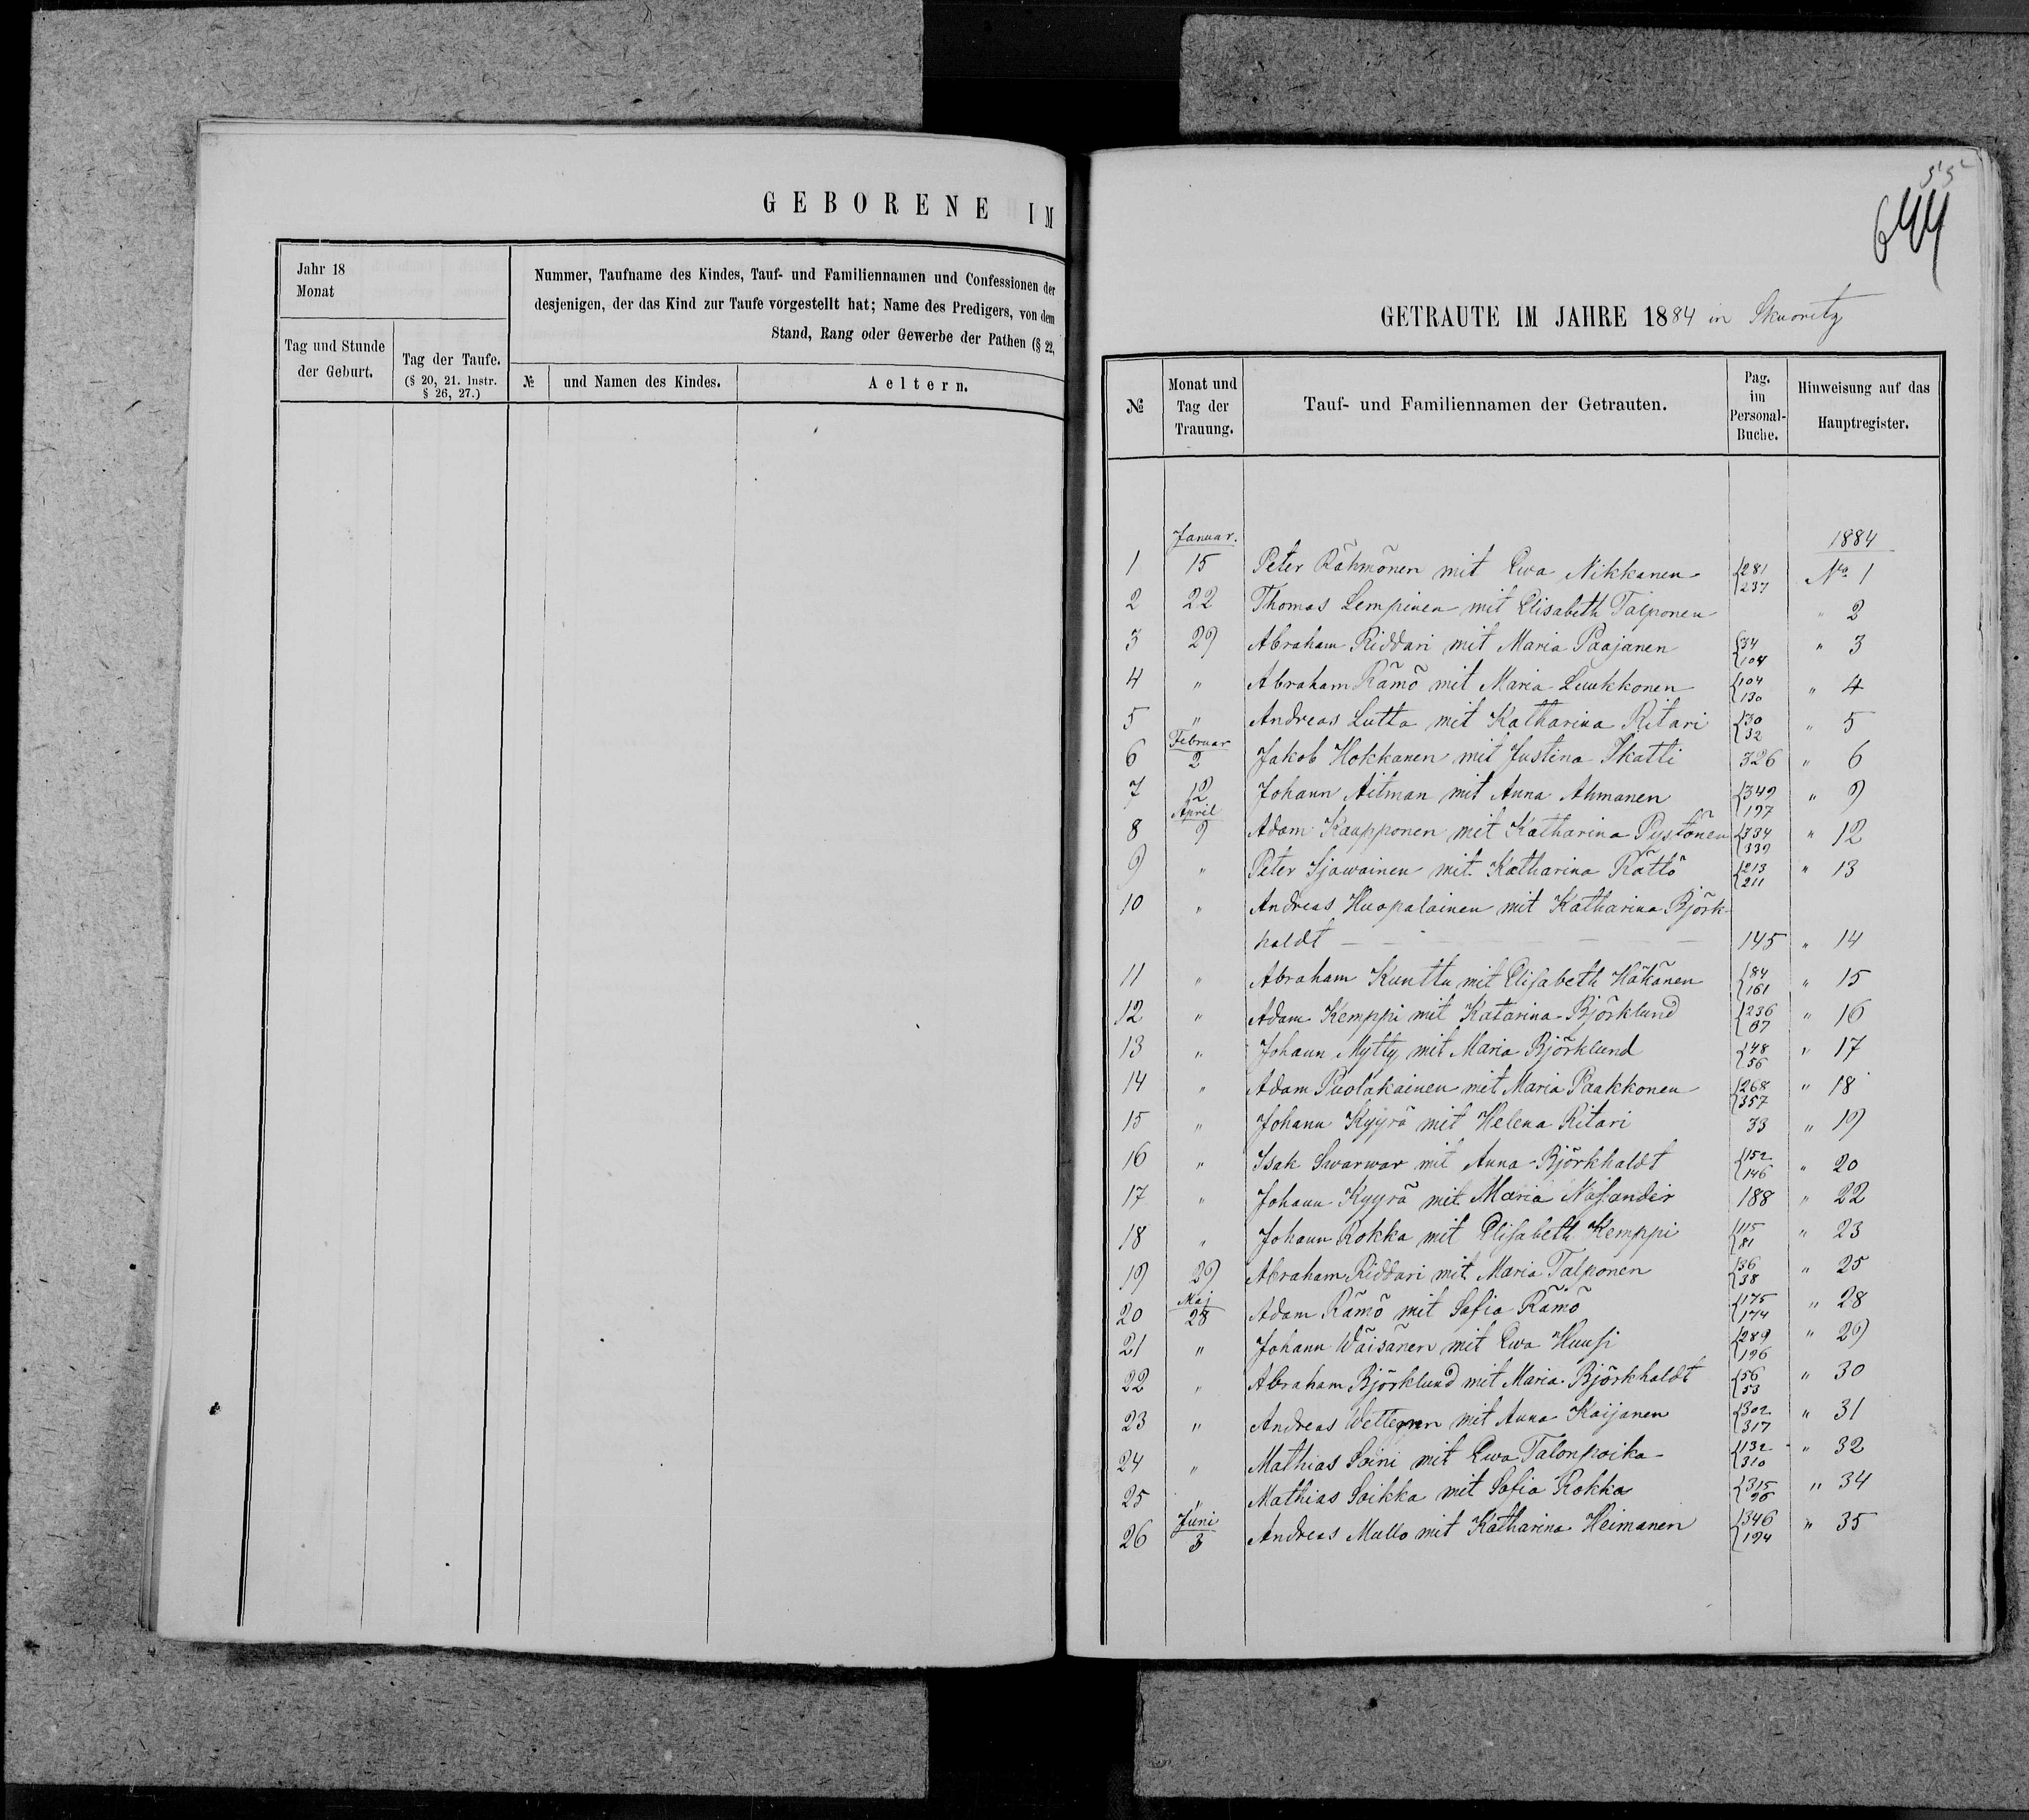 GEBORENE IM
Jahr 18
Monat
Nummer, Taufname des Kindes, Tauf- und Familiennamen und Confessionen der
desjenigen, der das Kind zur Taufe vorgestellt hat; Name des Predigers, von dem
Stand, Rang oder Gewerbe der Pathen (§ 22,
Tag und Stunde
der Geburt.
Tag der Taufe.
(§ 20, 21. Instr.
§ 26, 27.)
№
und Namen des Kindes.
Aeltern.
55
644
GETRAUTE IM JAHRE 1884 in Skworitz
№
Monat und
Tag der
Trauung.
Tauf- und Familiennamen der Getrauten.
Pag.
im
Personal-
Buche.
Hinweisung auf das
Hauptregister.
Januar. 1884
1 15 Peter Rähmönen mit Ewa Nikkanen {281 237 No 1
2 22 Thomas Lempinen mit Elisabeth Talponen " 2
3 29 Abraham Riddari mit Maria Paajanen {34 104 " 3
4 " Abraham Rämö mit Maria Luukkonen {104 130 " 4
5 " Andreas Lutta mit Katharina Ritari {30 32 " 5
Februar
6 2 Jakob Hokkanen mit Justina Skatti 326 " 6
7 12 Johann Aitman mit Anna Ahmanen {349 197 " 9
April
8 9 Adam Kaupponen mit Katharina Pystönen {334 339 " 12
9 " Peter Sjawainen mit Katharina Rättö {213 211 " 13
10 " Andreas Huopalainen mit Katharina Björk-
haldt — — — — — — 145 " 14
11 " Abraham Kunttu mit Elisabeth Häkänen {84 161 " 15
12 " Adam Kemppi mit Katarina Björklund {236 67 " 16
13 " Johann Mytty mit Maria Björklund {48 56 " 17
14 " Adam Puolakainen mit Maria Paakkonen {268 357 " 18
15 " Johann Kyyrä mit Helena Ritari 33 " 19
16 " Isak Swarwar mit Anna Björkhaldt {152 146 " 20
17 " Johann Kyyrä mit Maria Nassander 188 " 22
18 " Johann Rokka mit Elisabeth Kemppi {115 81 " 23
19 29 Abraham Riddari mit Maria Talponen {36 38 " 25
Maj
20 28 Adam Rämö mit Sofia Rämö {175 174 " 28
21 " Johann Wäisänen mit Ewa Huusi {289 196 " 29
22 " Abraham Björklund mit Maria Björkhaldt {56 53 " 30
23 " Andreas mit Anna Kaijanen {302 317 " 31
24 " Mathias Soini mit Ewa Talonpoika {132 310 " 32
25 " Mathias Soikka mit Sofia Rokka {315 96 " 34
Juni
26 3 Andreas Mullo mit Katharina Heimanen {346 194 " 35